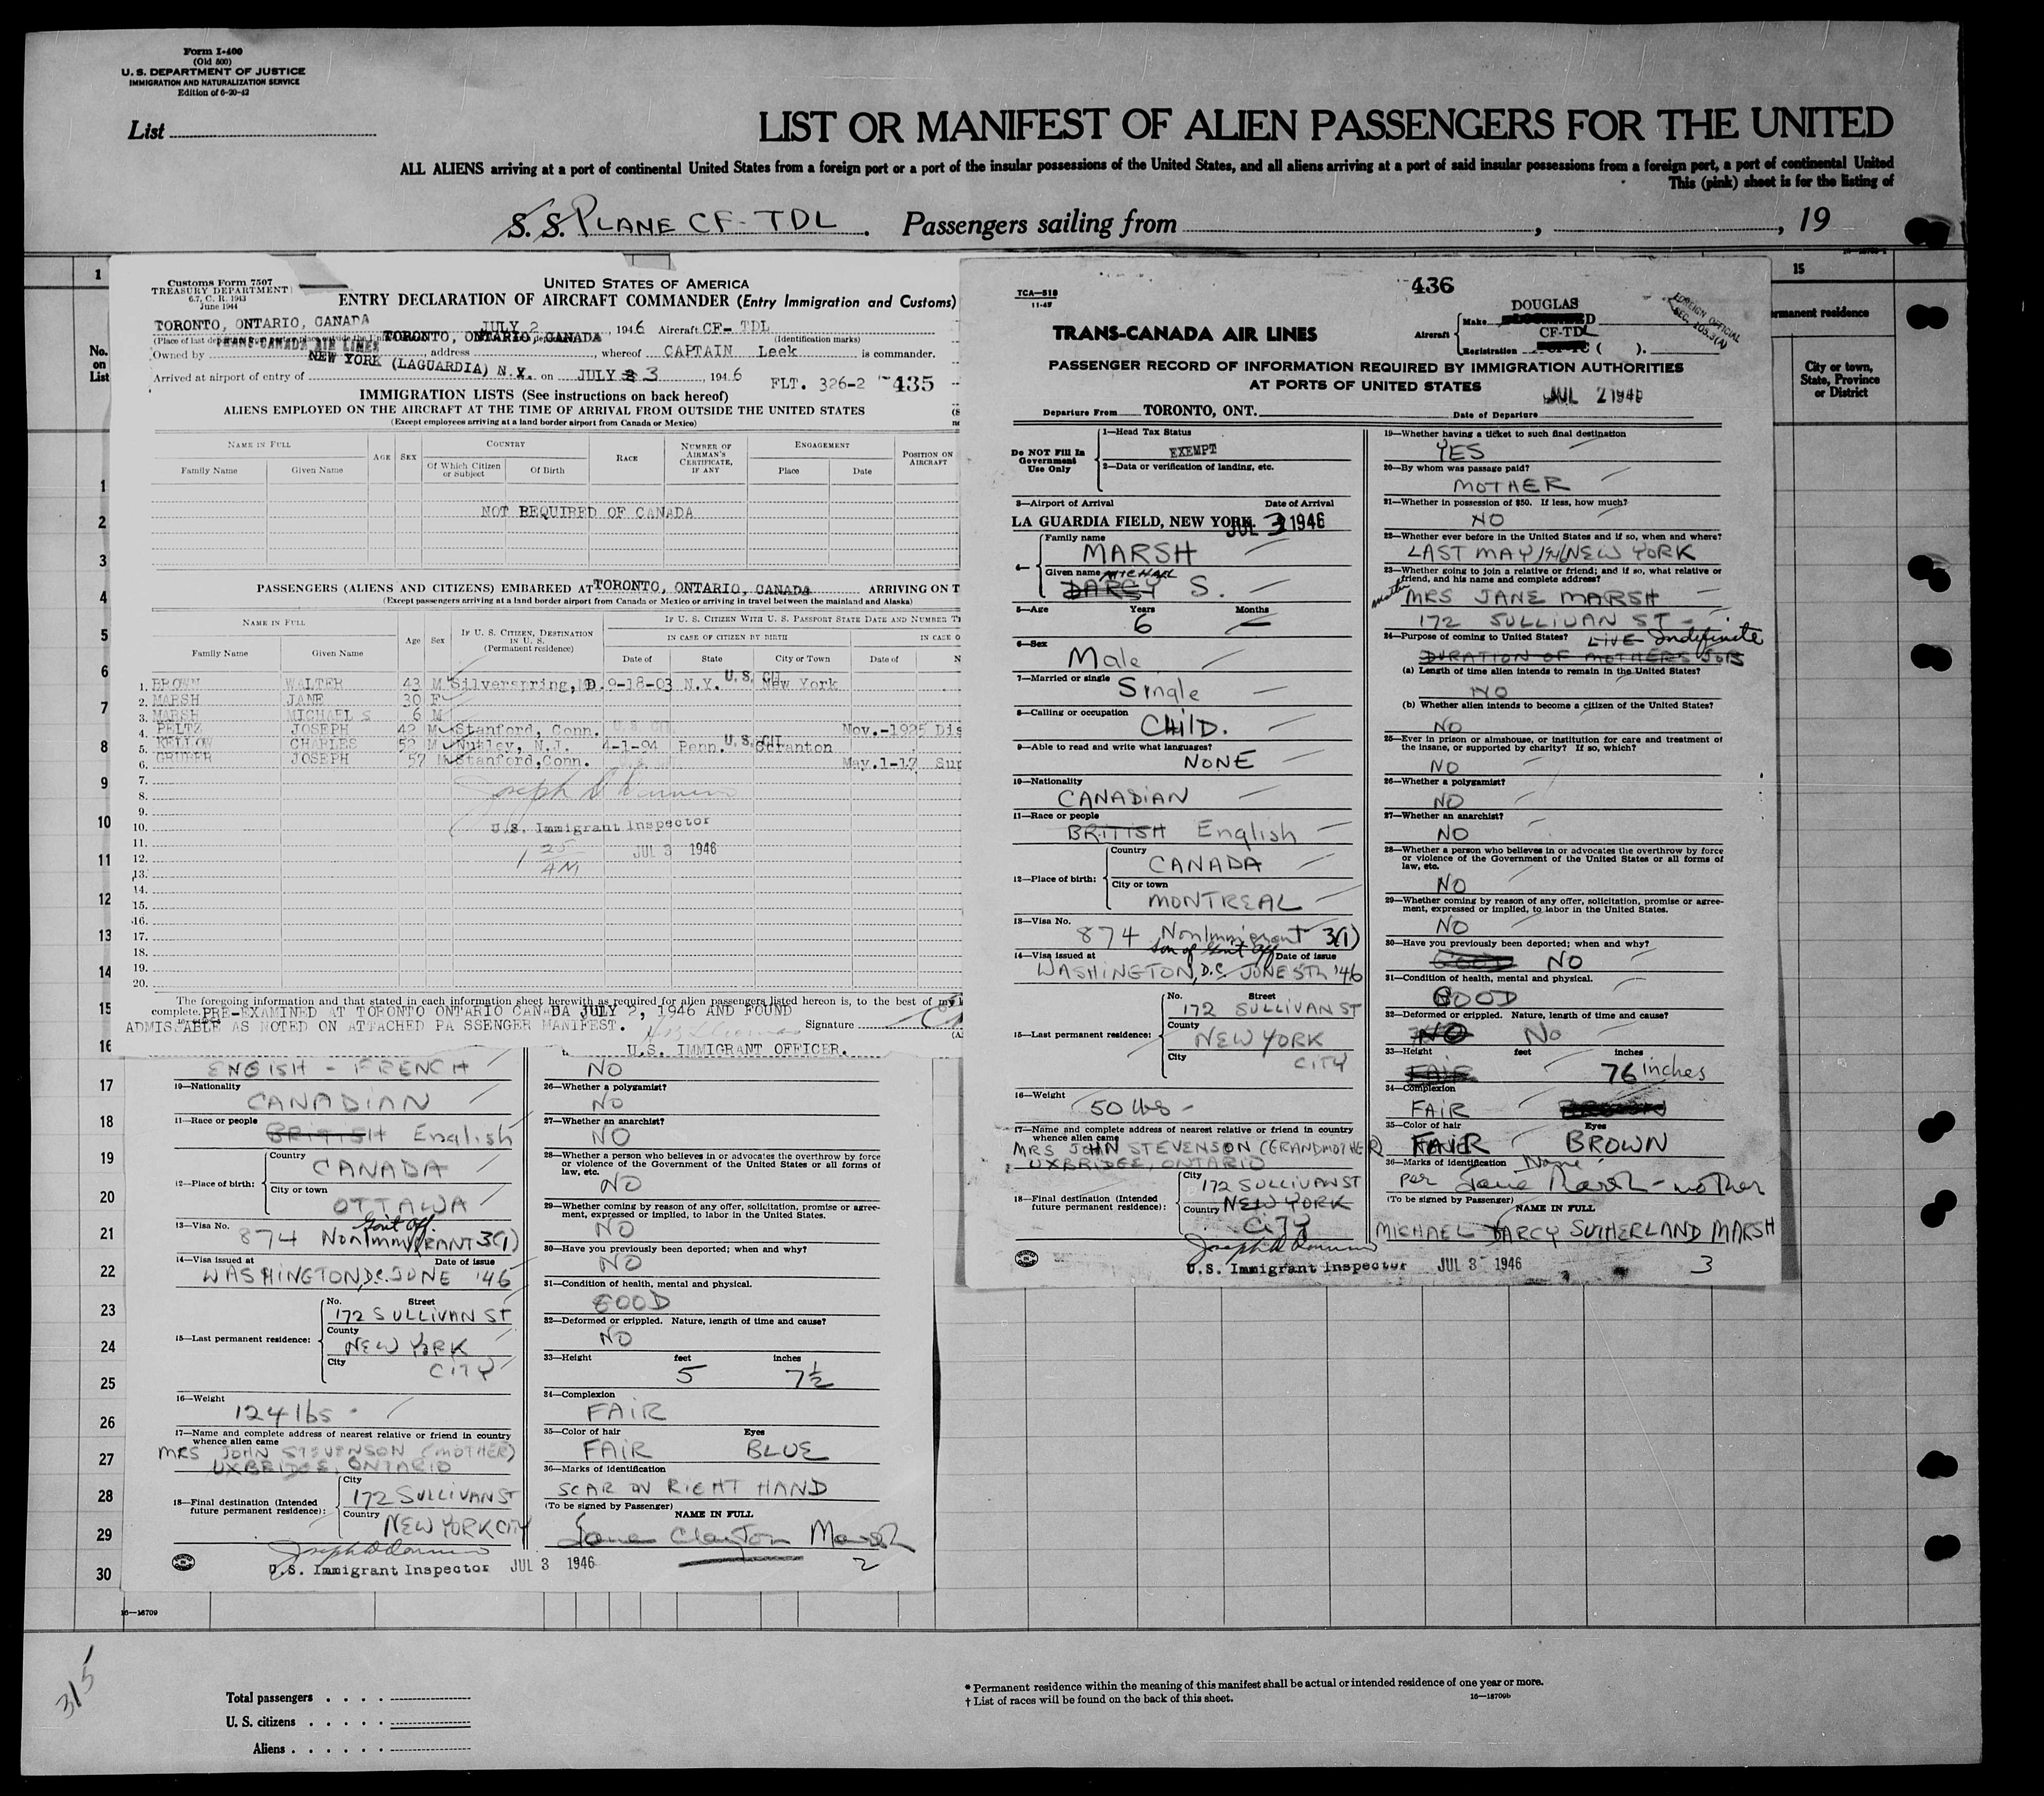 Form I-400
(Old 500)
U. S. DEPARTMENT OF JUSTICE
IMMIGRATION AND NATURALIZATION SERVICE
Edition of 6-20-42
List
LIST OR MANIFEST OF ALIEN PASSENGERS FOR THE UNITED
ALL ALIENS arriving at a port of continental United States from a foreign port or a port of the insular possessions of the United States, and all aliens arriving at a port of said insular possessions from a foreign port, a port of continental United
This (pink) sheet is for the listing of
S. S. PLANE CF-TDL. Passengers sailing from , , 19
1
15
No. on List
permanent residence
City or town, State, Province or District
Customs Form 7507
TREASURY DEPARTMENT
6.7, C. R. 1943
June 1944
UNITED STATES OF AMERICA
ENTRY DECLARATION OF AIRCRAFT COMMANDER (Entry Immigration and Customs)
TORONTO, ONTARIO, CANADA JULY 2, 1946 Aircraft CF-TDL
(Identification marks)
Owned by TRANS-CANADA AIR LINES address TORONTO, ONTARIO, CANADA, whereof CAPTAIN Leek is commander.
Arrived at airport of entry of NEW YORK (LAGUARDIA) N.Y. on JULY 3, 1946 FLT. 326-2 435
IMMIGRATION LISTS (See instructions on back hereof)
ALIENS EMPLOYED ON THE AIRCRAFT AT THE TIME OF ARRIVAL FROM OUTSIDE THE UNITED STATES
(Except employees arriving at a land border airport from Canada or Mexico)
NAME IN FULL AGE SEX COUNTRY RACE NUMBER OF AIRMAN'S CERTIFICATE, IF ANY ENGAGEMENT POSITION ON AIRCRAFT
Family Name Given Name Of Which Citizen or Subject Of Birth Place Date
NOT REQUIRED OF CANADA
PASSENGERS (ALIENS AND CITIZENS) EMBARKED AT TORONTO, ONTARIO, CANADA ARRIVING ON T
(Except passengers arriving at a land border airport from Canada or Mexico or arriving in travel between the mainland and Alaska)
NAME IN FULL Age Sex IF U. S. CITIZEN, DESTINATION IN U. S. (Permanent residence) IF U. S. CITIZEN WITH U. S. PASSPORT STATE DATE AND NUMBER T
IN CASE OF CITIZEN BY BIRTH IN CASE O
Family Name Given Name Date of State City or Town Date of N
1. BROWN WALTER 43 M Silverspring, MD. 9-18-03 N.Y. U.S. CIT. New York
2. MARSH JANE 30 F
3. MARSH MICHAEL S 6 M
4. PELTZ JOSEPH 42 M Stanford, Conn. U.S. CIT. Nov.-1925 Dis
5. KELLOW CHARLES 52 M Nutley, N.J. 4-1-94 Penn. U.S. CIT. Scranton
6. GRUBER JOSEPH 57 M Stanford, Conn. May.1-17 Sup
7.
8.
9.
10. U.S. Immigrant Inspector
11.
12. 1 25 AM JUL 3 1946
13.
14.
15.
16.
17.
18.
19.
20.
The foregoing information and that stated in each information sheet herewith as required for alien passengers listed hereon is, to the best of my
complete. PRE-EXAMINED AT TORONTO ONTARIO CANADA JULY 2, 1946 AND FOUND
ADMISSABLE AS NOTED ON ATTACHED PA SSENGER MANIFEST. Signature
U.S. IMMIGRANT OFFICER.
ENGISH - FRENCH
10—Nationality
CANADIAN
11—Race or people
BRITISH English
12—Place of birth:
Country
CANADA
City or town
OTTAWA
13—Visa No.
Govt Off.
874 NonImmIGRANT 3(1)
14—Visa issued at Date of issue
WASHINGTON D.C. JUNE '46
15—Last permanent residence:
No. Street
172 SULLIVAN ST
County
NEW YORK
City
CITY
16—Weight
124 lbs
17—Name and complete address of nearest relative or friend in country whence alien came
MRS JOHN STEVENSON (MOTHER)
UXBRIDGE, ONTARIO
18—Final destination (Intended future permanent residence):
City
172 SULLIVAN ST
Country
NEW YORK CITY
U.S. Immigrant Inspector JUL 3 1946
NO
26—Whether a polygamist?
NO
27—Whether an anarchist?
NO
28—Whether a person who believes in or advocates the overthrow by force or violence of the Government of the United States or all forms of law, etc.
NO
29—Whether coming by reason of any offer, solicitation, promise or agreement, expressed or implied, to labor in the United States.
NO
30—Have you previously been deported; when and why?
NO
31—Condition of health, mental and physical.
GOOD
32—Deformed or crippled. Nature, length of time and cause?
NO
33—Height feet inches
5 7½
34—Complexion
FAIR
35—Color of hair Eyes
FAIR BLUE
36—Marks of identification
SCAR ON RIGHT HAND
(To be signed by Passenger)
NAME IN FULL
Jane Clayton Marsh
2
TCA—518
11-45
436
TRANS-CANADA AIR LINES
Aircraft
Make DOUGLAS
CF-TDL
Registration ( ).
FOREIGN OFFICIAL
SEC. 105.3(A)
PASSENGER RECORD OF INFORMATION REQUIRED BY IMMIGRATION AUTHORITIES
AT PORTS OF UNITED STATES
JUL 2 1946
Departure From TORONTO, ONT. Date of Departure
Do NOT Fill In Government Use Only
1—Head Tax Status
EXEMPT
2—Data or verification of landing, etc.
3—Airport of Arrival Date of Arrival
LA GUARDIA FIELD, NEW YORK. JUL 3 1946
4— Family name
MARSH
Given name MICHAEL
DARCY S.
5—Age Years Months
6
6—Sex
Male
7—Married or single
Single
8—Calling or occupation
CHILD.
9—Able to read and write what languages?
NONE
10—Nationality
CANADIAN
11—Race or people
BRITISH English
12—Place of birth:
Country
CANADA
City or town
MONTREAL
13—Visa No.
874 NonImmigrant 3(1)
Son of Govt Off
14—Visa issued at Date of issue
WASHINGTON, D.C. JUNE 5TH '46
15—Last permanent residence:
No. Street
172 SULLIVAN ST
County
NEW YORK
City
CITY
16—Weight
50 lbs -
17—Name and complete address of nearest relative or friend in country whence alien came
MRS JOHN STEVENSON (GRANDMOTHER)
UXBRIDGE, ONTARIO
18—Final destination (Intended future permanent residence):
City
172 SULLIVAN ST
Country NEW YORK
CITY
U.S. Immigrant Inspector JUL 3 1946
19—Whether having a ticket to such final destination
YES
20—By whom was passage paid?
MOTHER
21—Whether in possession of $50. If less, how much?
NO
22—Whether ever before in the United States and if so, when and where?
LAST MAY 1946 NEW YORK
23—Whether going to join a relative or friend; and if so, what relative or friend, and his name and complete address?
mother MRS JANE MARSH
172 SULLIVAN ST -
24—Purpose of coming to United States? LIVE Indefinite
DURATION OF MOTHERS JOB
(a) Length of time alien intends to remain in the United States?
NO
(b) Whether alien intends to become a citizen of the United States?
NO
25—Ever in prison or almshouse, or institution for care and treatment of the insane, or supported by charity? If so, which?
NO
26—Whether a polygamist?
NO
27—Whether an anarchist?
NO
28—Whether a person who believes in or advocates the overthrow by force or violence of the Government of the United States or all forms of law, etc.
NO
29—Whether coming by reason of any offer, solicitation, promise or agreement, expressed or implied, to labor in the United States.
NO
30—Have you previously been deported; when and why?
GOOD NO
31—Condition of health, mental and physical.
GOOD
32—Deformed or crippled. Nature, length of time and cause?
NO No
33—Height feet inches
FAIR 76 inches
34—Complexion
FAIR BROWN
35—Color of hair Eyes
FAIR BROWN
36—Marks of identification None
per Jane Marsh - mother
(To be signed by Passenger)
NAME IN FULL
MICHAEL DARCY SUTHERLAND MARSH
3
1
2
3
4
5
6
7
8
9
10
11
12
13
14
15
16
17
18
19
20
21
22
23
24
25
26
27
28
29
30
16—18709
315
Total passengers . . . .
U. S. citizens . . . . .
Aliens . . . . . .
* Permanent residence within the meaning of this manifest shall be actual or intended residence of one year or more.
† List of races will be found on the back of this sheet.
16—18709b